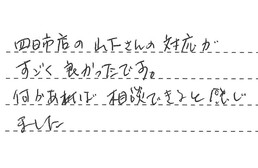 四日市店の山下さんの対応が
すごく良かったです。
何かあれば相談できると感じ
ました